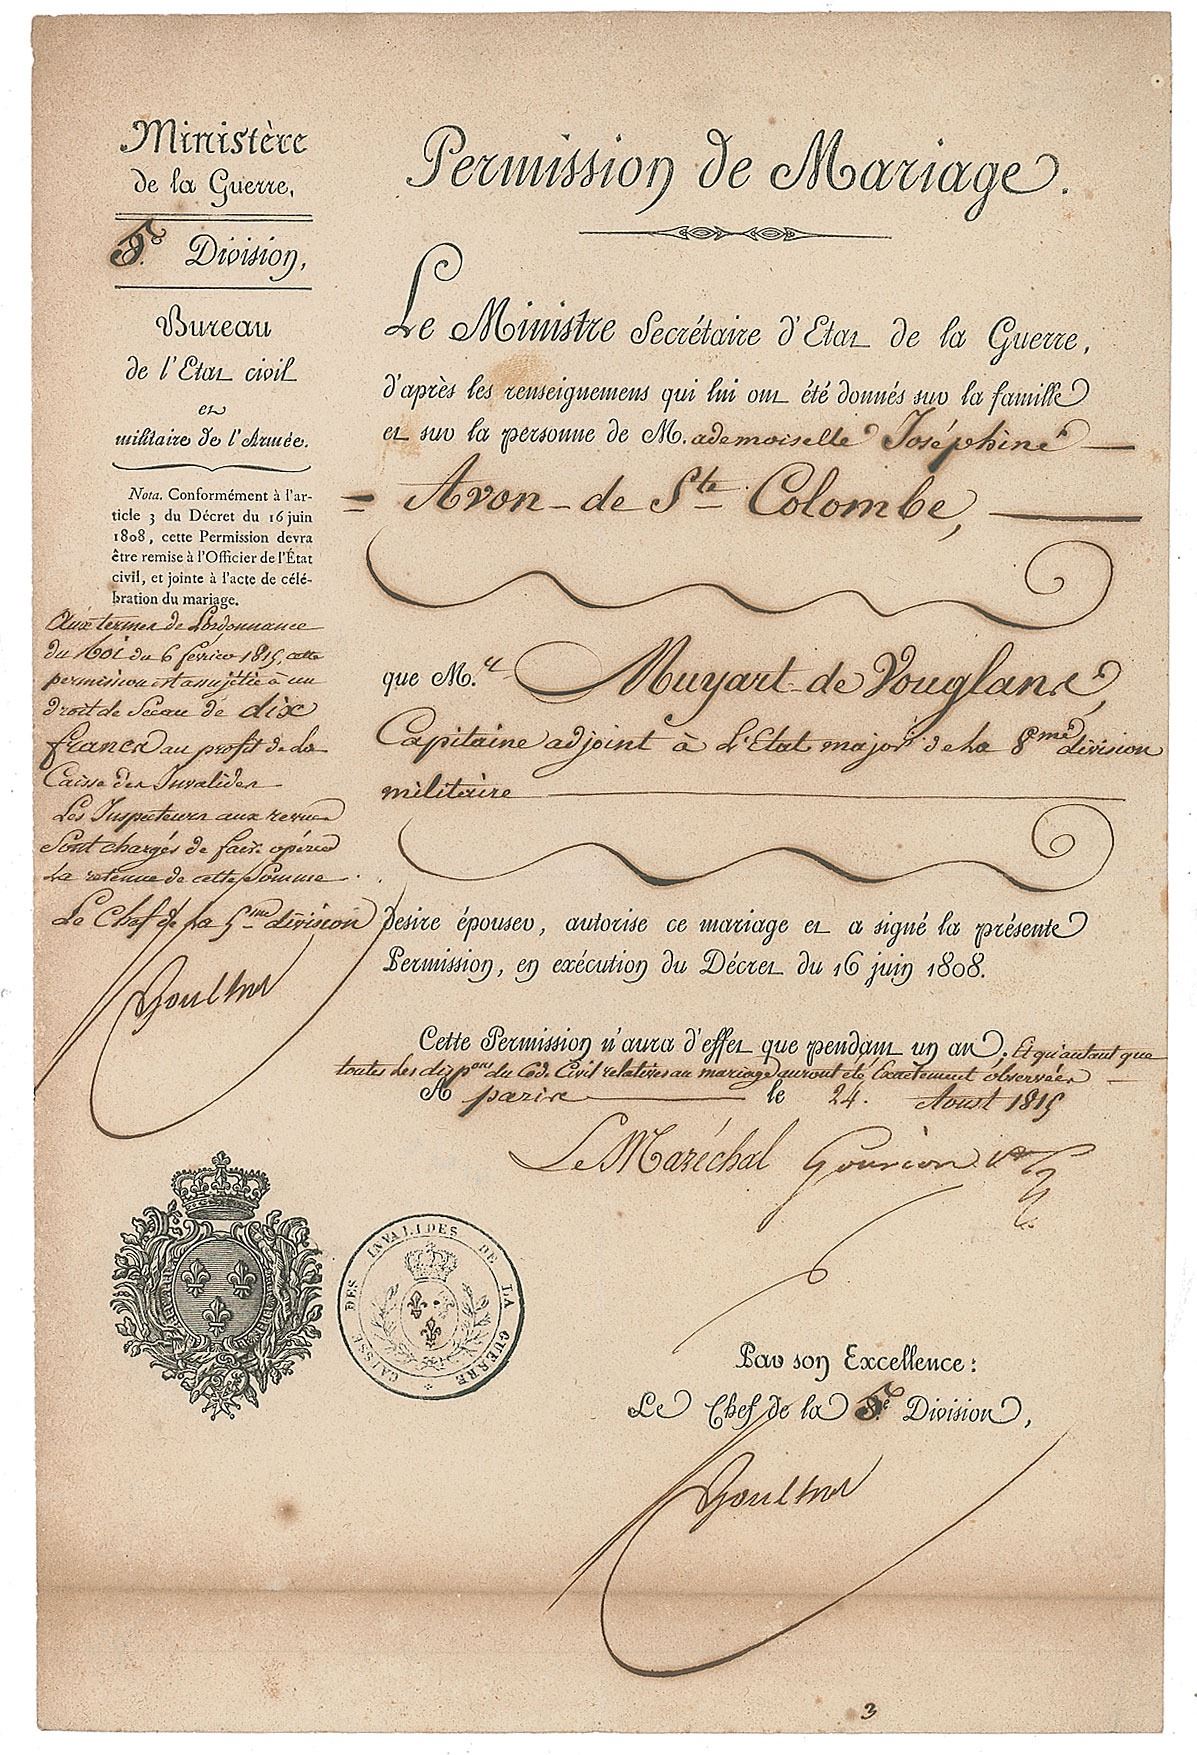 Ministère
de la Guerre,
5.e Division,
Bureau
de l'Etat civil
et
militaire de l'Armée.
Nota. Conformément à l'ar-
ticle 3 du Décret du 16 juin
1808, cette Permission devra
être remise à l'Officier de l'État
civil, et jointe à l'acte de célé-
bration du mariage.
Aux termes de L'ordonnance
du Roi du 6 février 1815, cette
permission est assujétie à un
droit de Sceau de dix
francs au profit de la
Caisse des Invalides
Les Inspecteurs aux revues
Sont chargés de faire opérer
La retenue de cette Somme.
Le Chef de la 5me division
Permission de Mariage.
Le Ministre Secrétaire d'Etat de la Guerre,
d'après les renseignemens qui lui ont été donnés sur la famille
et sur la personne de M.ademoiselle Joséphine
= Avon de Ste Colombe,
que M.r Muyart de Vouglans,
Capitaine adjoint à L'Etat major de La 8me division
militaire
Desire épouser, autorise ce mariage et a signé la présente
Permission, en exécution du Décret du 16 juin 1808.
Cette Permission n'aura d'effet que pendant un an, Et qu'autant que
toutes Les dispons du Cod. Civil relatives au mariage auront été Exactement observées
A paris le 24. Aoust 1815
Le Maréchal Gouvion St Cyr
CAISSE DES INVALIDES DE LA GUERRE
Par son Excellence:
Le Chef de la 5.e Division,
3